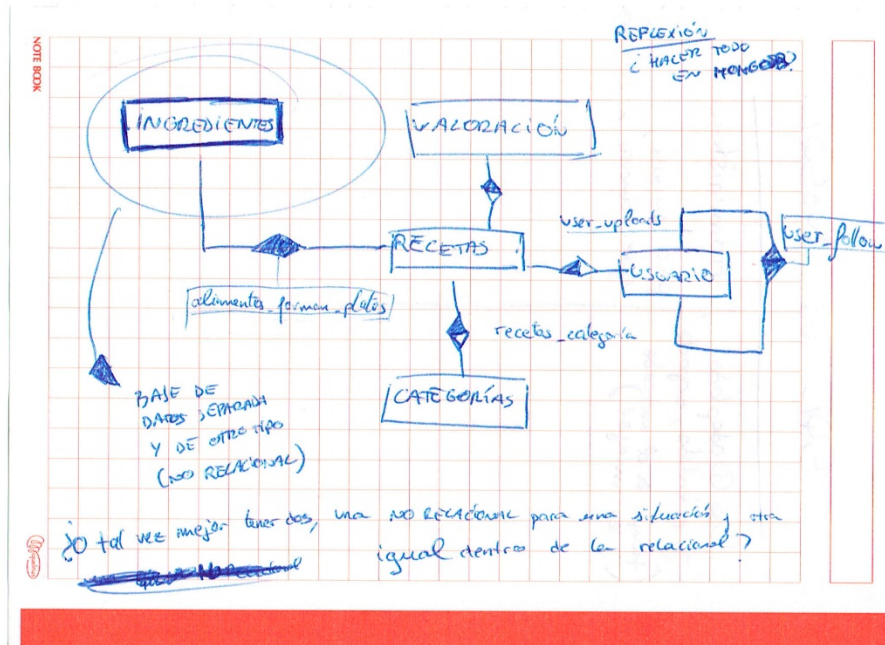 NOTE BOOK
REFLEXIÓN
¿HACER TODO
EN MONGODB?
INGREDIENTES
VALORACIÓN
user_uploads
user_follow
RECETAS
USUARIO
alimentos_forman_platos
recetas_categoría
CATEGORÍAS
BASE DE
DATOS SEPARADA
Y DE OTRO TIPO
(NO RELACIONAL)
¿O tal vez mejor tener dos, una NO RELACIONAL para una situación y otra
igual dentro de la relacional?